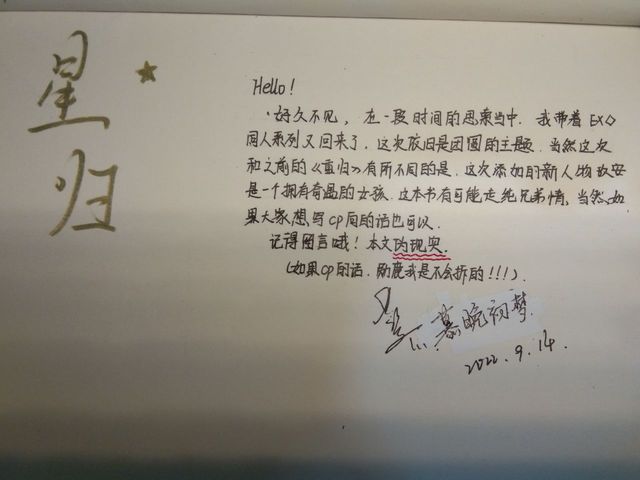 星归
Hello!
好久不见，在一段时间的思索当中，我带着EXO
同人系列又回来了，这次依旧是团圆的主题，当然这次
和之前的《重归》有所不同的是，这次添加的新人物
是一个拥有奇品的女孩，这本书有可能走纯兄弟情，当然，如
果大家想写cp向的话也可以.
记得留言哦！本文均现实.
(如果cp的话，勋鹿我是不会拆的!!!)
慕晚初梦
2022.9.14.